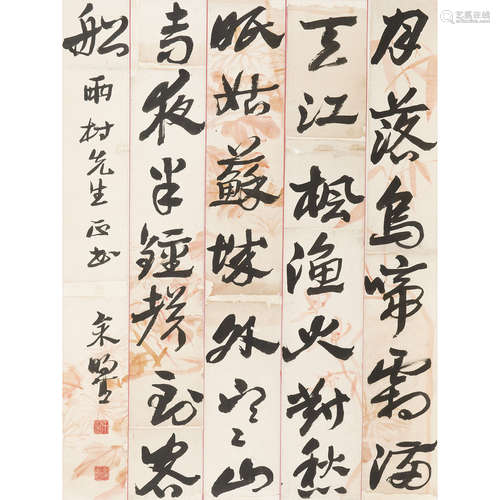 月落烏啼霜滿
天江楓漁火對愁
眠姑蘇城外寒山
寺夜半鐘聲到客
船
雨村先生正書
艺狐在线